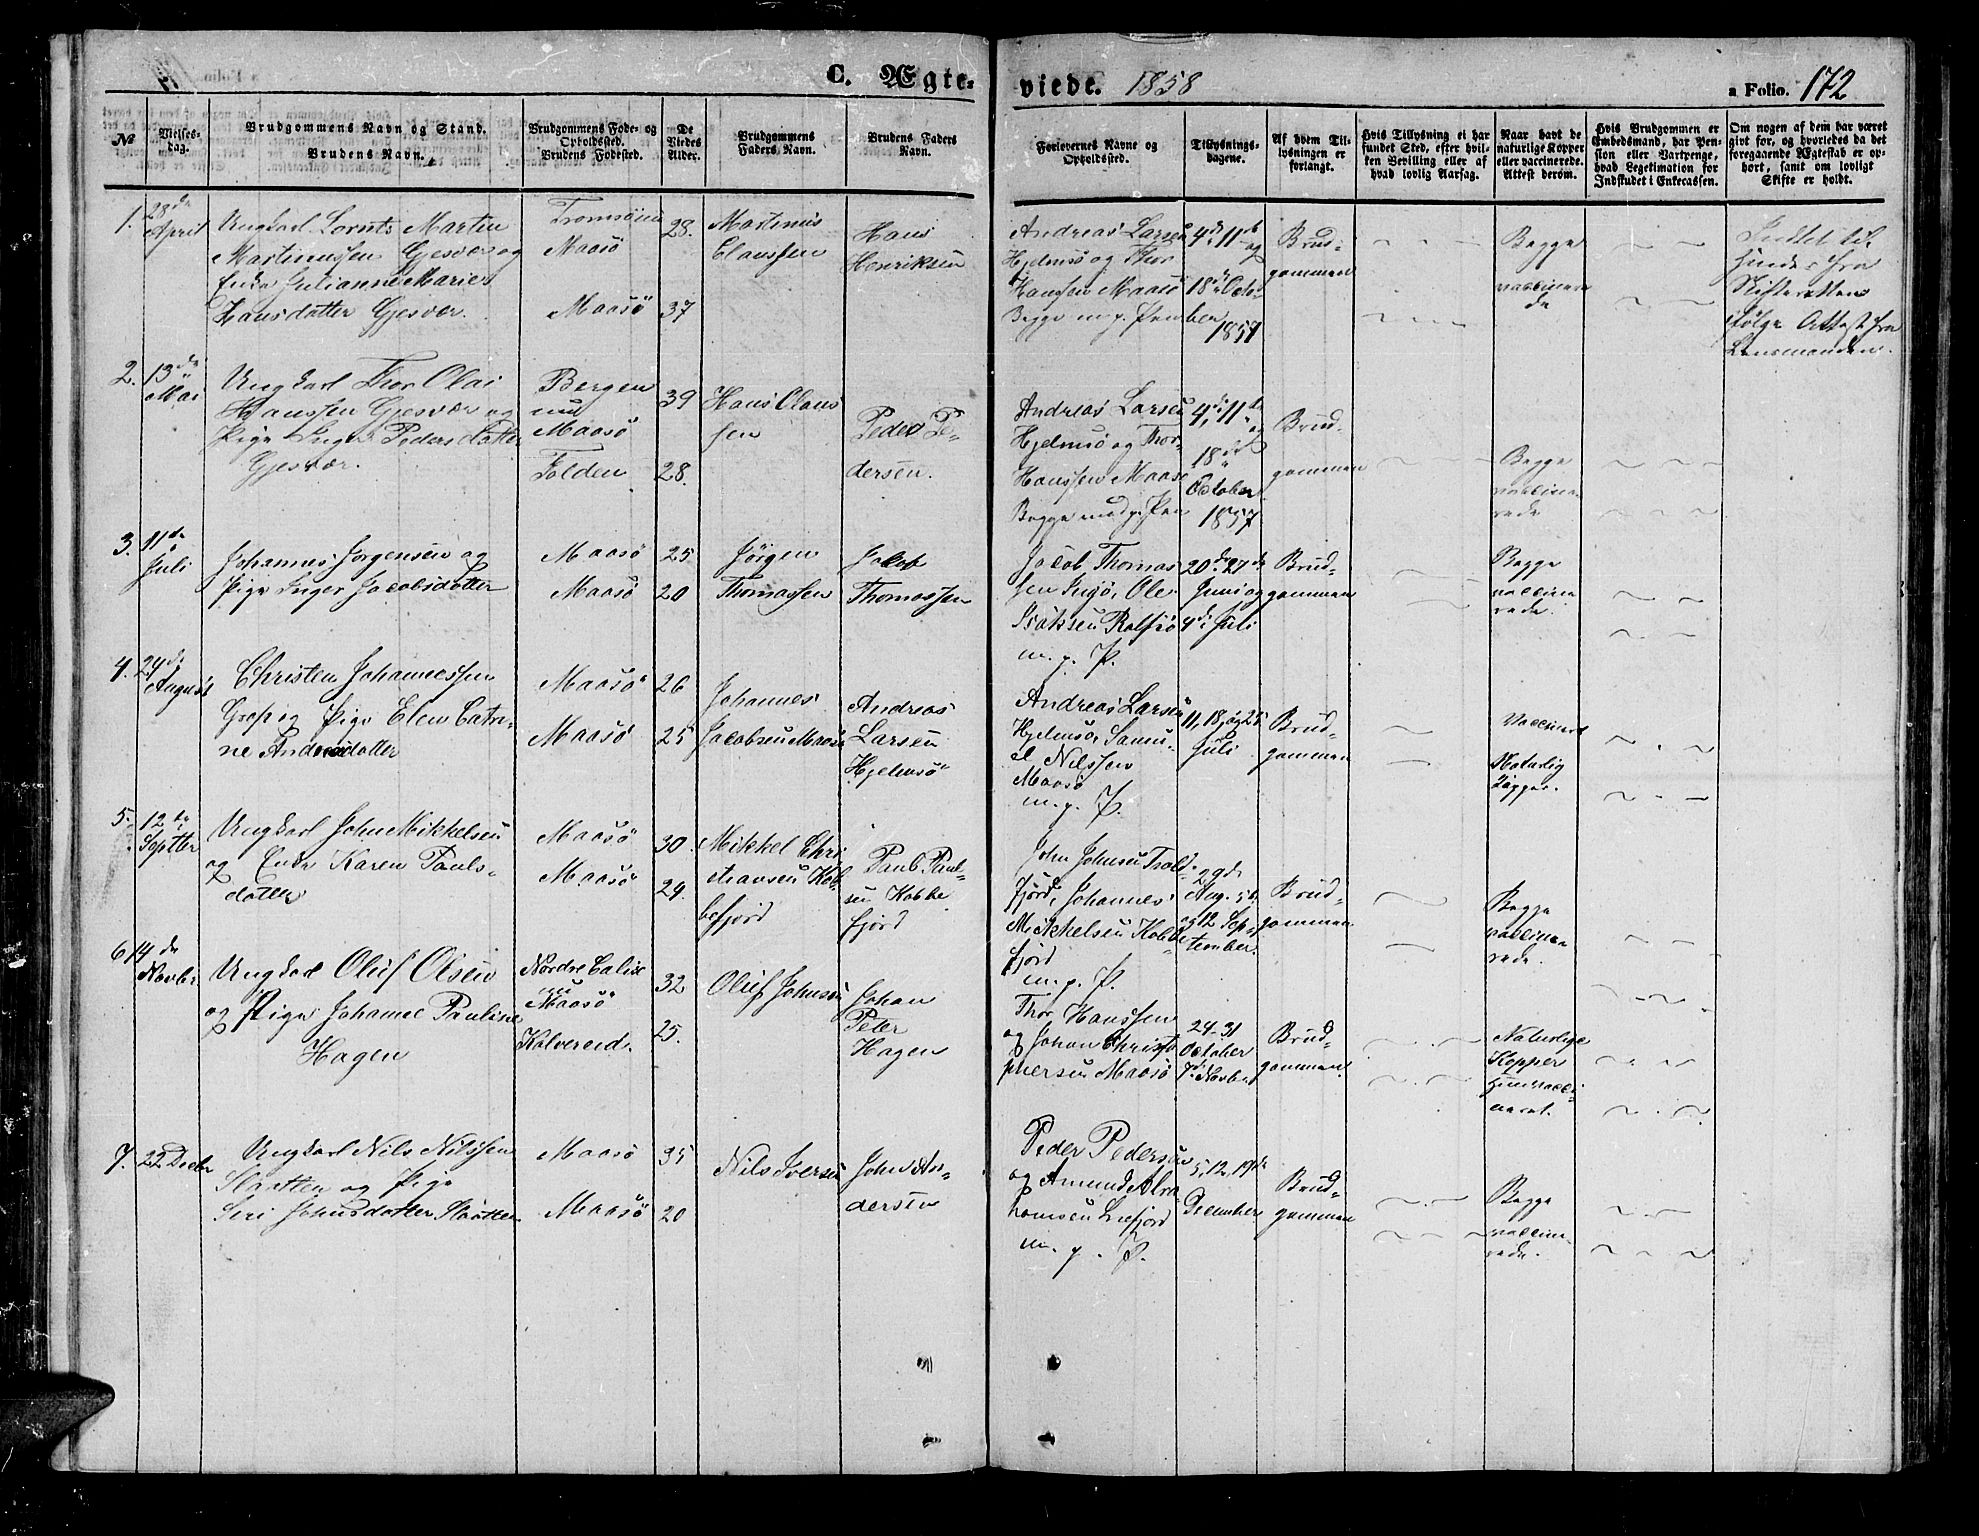 C. Ægte-
viede. 1858
a Folio. 172
№
Vielses-
dag.
Brudgommens Navn og Stand.
Brudens Navn.
Brudgommens Føde- og
Opholdssted.
Brudens Fødested.
De
Viedes
Alder.
Brudgommens
Faders Navn.
Brudens Faders
Navn.
Forlovernes Navne og
Opholdssted.
Tillysnings-
dagene.
Af hvem Til-
lysningen er
forlangt.
Hvis Tillysning ei har
fundet Sted, efter hvil-
ken Bevilling eller af
hvad lovlig Aarsag.
Naar havt de
naturlige Kopper
eller vaccinerede.
Attest derom.
Hvis Brudgommen er
Embedsmand, har Pen-
sion eller Vartpenge,
hvad Legetimation for
Indskudet i Enkecassen.
Om nogen af dem har været
givt for, og hvorledes da det
foregaaende Ægteskab er op-
hørt, samt om lovligt
Skifte er holdt.
1.
28de
April
Ungkarl Lornts Martin
Martinussen Gjesvær og
Enke Julianne Marie
Hansdatter Gjesvær.
Tromsøen
Maasø
Maasö
28.
37
Martinus
Claussen
Hans
Henriksen
Andreas Larsen
Hjelmsö og Thor
Hanssen Maasö
Begge m. p. Pen
4de, 11te
og
18de Octo-
ber
1857
Brud-
gommen
Begge
vaccinere
de
Intet til
hinder fra
Skifteretten
ifølge Attest fra
Lensmanden.
2.
13de
Mai
Ungkarl Thor Olai
Hanssen Gjesvær og
Pige Inger Pedersdatter
Gjesvær.
Bergen
nu
Maasö
Folden
39
28.
Hans Olaus
sen
Peder Pe-
dersen.
Andreas Larsen
Hjelmsö og Thor-
Hanssen Maasö
Begge med p. Pen
4de, 11te
og
18de
October
1857
Brud-
gommen
Begge
vaccine-
rede
3.
11de
Juli
Johannes Jørgensen og
Pige Inger Jacobsdatter
Maasö
Maasö
25
20
Jørgen
Thomassen
Jacob
Thomassen
Jacob Thomas
sen Ole
Isaksen Rolfsö
m. p. P.
20de 27de
Juni og
4de Juli
Brud-
gommen
Begge
vaccine
rede.
4.
24de
August
Christen Johannessen
og Pige Elen Catri-
ne Andersdatter
Maasö
Maasö
26
25
Johannes
Jacobsen Maasö
Andreas
Larsen
Hjelmsö
Andreas Larsen
Hjelmsö, Samu-
el Nilssen
Maasö
m. p. P.
11, 18, og 25
Juli
Brud-
gommen
Vaccinert
Naturlig
5.
12te
Septbr
Ungkarl John Mikkelsen
og Enke Karen Pauls-
datter
Maasö
Maasö
30
29.
Mikkel Chri
stiansen Kob-
befjord
Paul Paul-
sen Kobbe
fjord
John Johnsen Trold-
fjord, Johannes
Mikkelsen Kobbe
fjord
m. p. P.
29de
Aug. 5te
og 12 Sep-
tember
Brud-
gommen
Begge
vaccine
rede.
6
14de
Novbr
Ungkarl Oluf Olsen
og Pige Johanne Pauline
Hagen
Nordre
nu
Maasö
Kolvereid.
32
25.
Oluf Johnsen
Johan
Peter
Hagen
Thor Hanssen
og Johan Christo
phersen Maasö
24-31
October
7de Novbr
Brud-
gommen
Naturlige
Kopper
7.
22 Decbr
Ungkarl Nils Nilssen
Slaatten og Pige
Siri Johnsdatter Slaatten
Maasö
Maasö
35
20
Nils Iversen
John An-
dersen
Peder Pedersen
og Amund Abra
hamsen Snefjord
m. p. P.
5, 12, 19de
December
Brud-
gommen
Begge
vaccine-
rede.